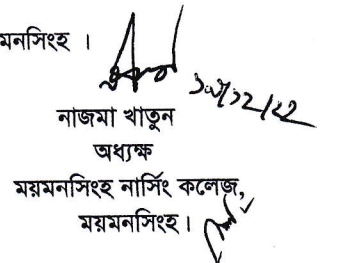 মনসিংহ ।
নাজমা খাতুন
অধ্যক্ষ
ময়মনসিংহ নার্সিং কলেজ,
ময়মনসিংহ।